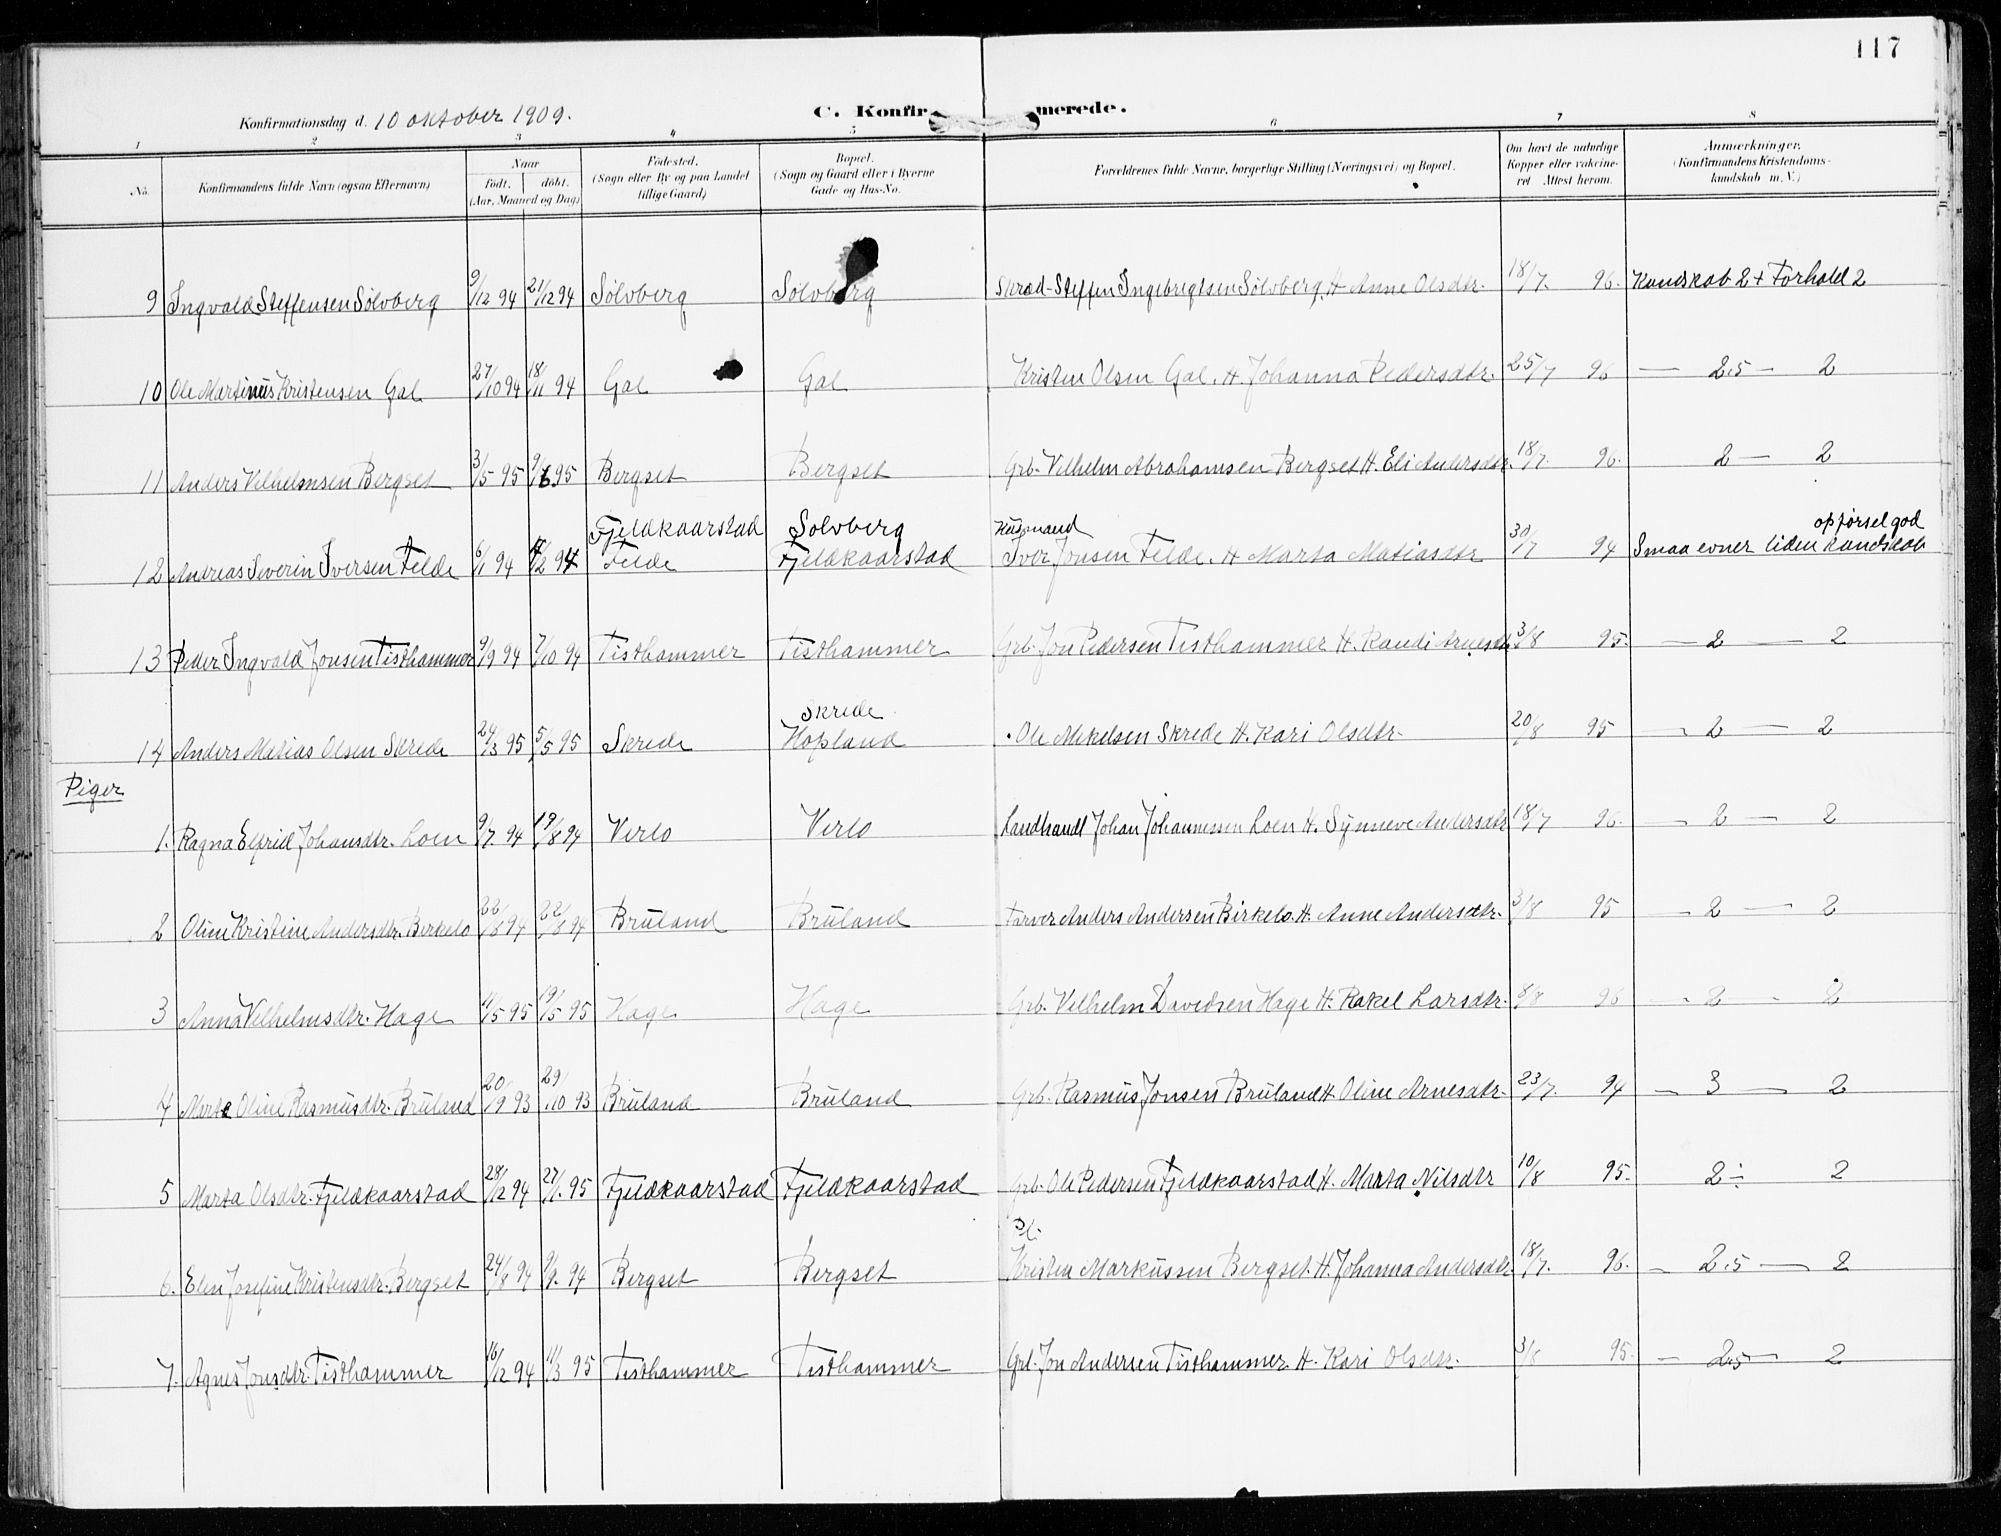 117
Konfirmationsdag d. 10 oktober 1909. C. Konfirmerede.
1 2 3 4 5 6 7 8
No. Konfirmandens fulde Navn (ogsaa Efternavn) Naar født. døbt. (Aar, Maaned og Dag) Fødested. (Sogn eller By og paa Landet tillige Gaard) Bopæl. (Sogn og Gaard eller i Byerne Gade og Hus-No. Forældrenes fulde Navne, borgerlige Stilling (Næringsvei) og Bopæl. Om havt de naturlige Kopper eller vakcineret Attest herom. Anmærkninger. (Konfirmandens Kristendomskundskab m.V.)
9 Ingvald Steffensen Sølvberg 9/12 94 21/12 94 Sølvberg Sølvberg Skræd- Steffen Ingebrigtsen Sølvberg. H. Anne Olsdtr. 18/7. 96. Kundskab 2+ Forhold 2
10 Ole Martinus Kristensen Gal 27/10 94 18/11 94 Gal Gal Kristen Olsen Gal. H. Johanna Pedersdtr. 25/7 96 — 2.5 — 2
11 Anders Vilhelmsen Bergset 3/5 95 9/6 95 Bergset Bergset Grb. Vilhelm Abrahamsen Bergset H. Eli Andersdtr. 18/7. 96. 2 — 2
Fjeldkaarstad Sølvberg Husmand opførsel god
12 Andreas Severin Iversen Felde 6/1 94 /2 94 Felde Fjeldkaarstad Iver Jonsen Felde. H. Marta Matiasdtr 30/7 94 Smaa evner liden kundskab
13 Peder Ingvald Jonsen Tisthammer 9/9 94 7/10 94 Tisthammer Tisthammer Grb. Jon Pedersen Tisthammer H. Randi Arnesdtr 3/8 95. — 2 — 2
Skrede
14 Anders Matias Olsen Skrede 24/3 95 5/5 95 Skrede Hopland Ole Mikelsen Skrede H. Kari Olsdtr. 20/8 95 — 2 — 2
Piger
1. Ragna Elfrid Johansdtr. Loen 9/7. 94 19/8 94 Verlo Verlo Landhandl Johan Johannessen Loen H. Synneve Andersdtr 18/7 96. — 2 — 2
2 Oline Kristine Andersdtr. Birkelo 22/8 94 22/8 94 Brüland Brüland Farver Anders Andersen Birkelo. H. Anne Andersdtr. 3/8 95 — 2 — 2
3 Anna Vilhelmsdtr. Hage 11/5 95 19/5 95 Hage Hage Grb. Vilhelm Davidsen Hage H. Rakel Larsdtr. 8/8 96 — 2 - 2
4 Marte Oline Rasmusdtr. Brüland 20/9 93 29/10 93 Brüland Brüland Grb. Rasmus Jonsen Brüland H. Oline Arnesdtr. 23/7. 94 — 3 — 2
5 Marta Olsdtr. Fjeldkaarstad 28/12 94 27/1. 95 Fjeldkaarstad Fjeldkaarstad Grb. Ole Pedersen Fjeldkaarstad H. Marta Nilsdtr 10/8 95. 2 ÷ 2
Pl.
6. Elen Josefine Kristensdtr. Bergset 24/8 94 9/9. 94 Bergset Bergset Kristen Markussen Bergset. H. Johanna Andersdtr 18/7. 96. — 2.5 — 2
7. Agnes Jonsdtr. Tisthammer 16/12 94 11/3 95 Tisthammer Tisthammer Grb. Jon Andersen Tisthammer. H. Kari Olsdtr. 3/8 95. — 2.5 — 2